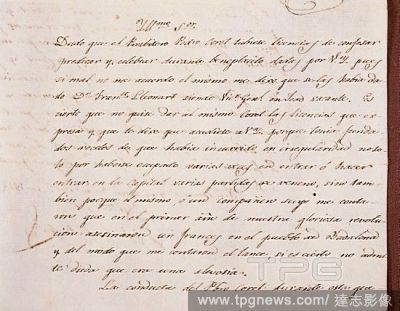 Yllmo. Sor.
Dudo que el Presbitero Pedro Corol tubiese licencias de confesar
predicar y celebrar durante beneplacito dadas por V.Y. pues
si mal no me acuerdo el mismo me dixo que se las habia da
do Dn. Franco. Llonart siendo Vico. Genl. en Sead vacante. Es
cierto que no quise dar al mismo Corol las licencias que ex
presa y que le dixe que acudiese a V.Y. porque tenia funda
dos recelos de que habia incurrido en irregularidad no so
lo por haberse ocupado varias veces en entrar ó hacer
entrar en la Capital varias partidas de veneno, sino tam
bien porque al mismo ó un compañero suyo me conta
ron que en el primer año de nuestra gloriosa revolu
cion asesinaron un frances en el pueblo de Badalona
y del modo que me contaron el lance si es cierto no admi
te duda que era una alevosia.
La conducta del Pbro. Corol durante esta gue
TPG
www.tpgnews.com / 達志影像